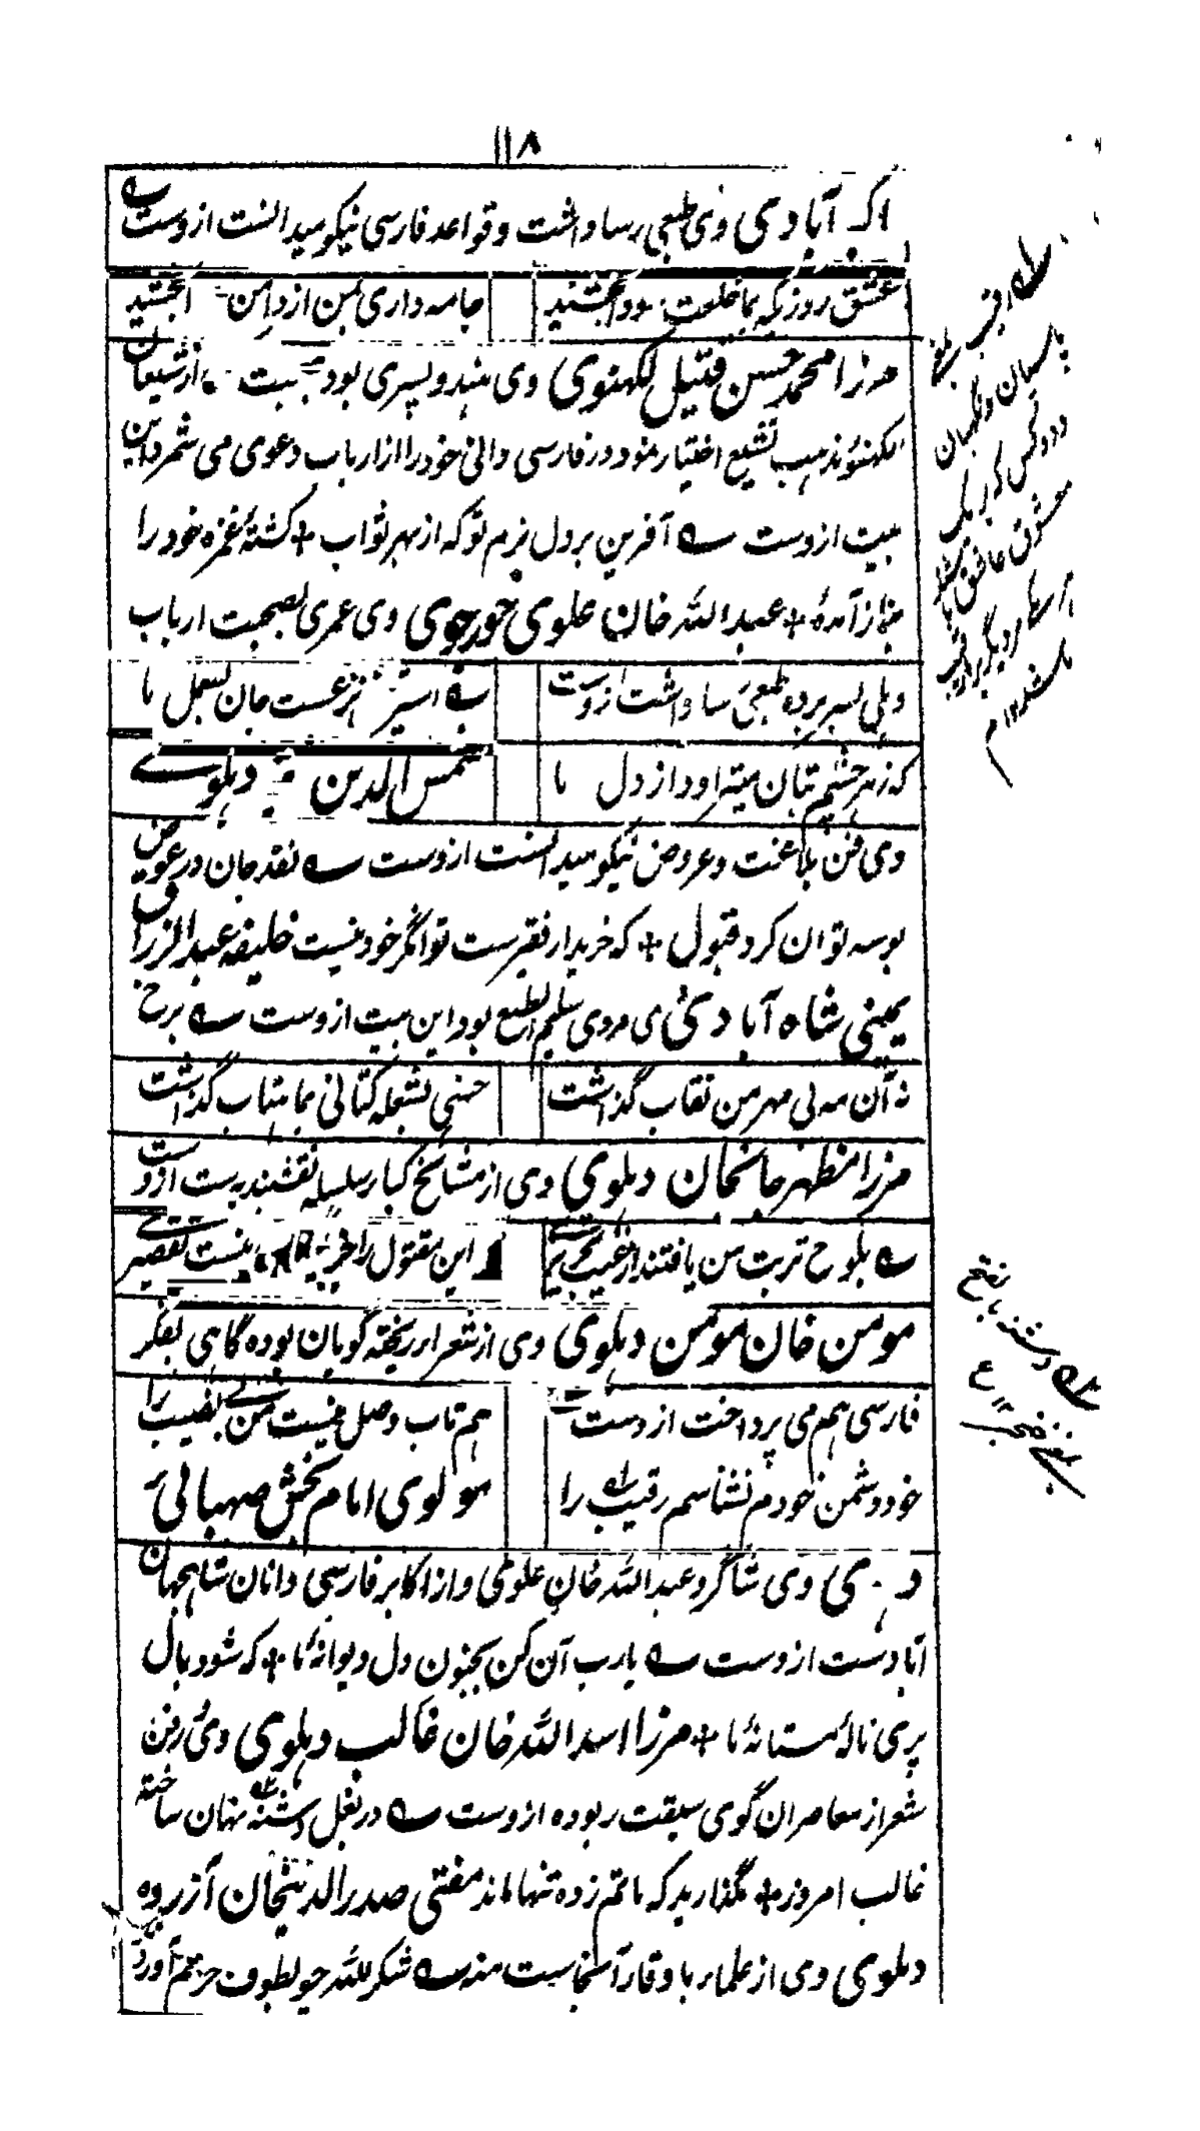 ۱۱۸
اکبرآبادی وی طبعی رسا داشت و قواعد فارسی نیکو میدانست ازوست
عشق روزیکه بما خلعت سودا بخشید جامه داری بمن از دامن بخشید
مرزا محمد حسن قتیل لکهنوی وی هندو پسری بود به از شیعان
لکهنو مذهب تشیع اختیار نمود در فارسی دانی خود را از ارباب دعوی می شمرد این
بیت ازوست ؎ آفرین بر دل نرم تو که از بهر ثواب + کشتهٔ غمزه خود را
بنماز آمدهٔ + عبدالله خان علوی خورجوی وی عمری بصحبت ارباب
دهلی بسر برده طبعی رسا داشت ازوست ؎ نزعست جان بسمل ما
که زهر چشم بتان میتراود از دل ما شمس الدین فقیر دهلوی
وی فن بلاغت و عروض نیکو میدانست ازوست ؎ نقد جان در عوض
بوسه توان کرد قبول + که خریدار فقیرست توانگر خود نیست خلیفه عبدالرزاق
یمینی شاه آبادی وی مردی سلیم الطبع بود این بیت ازوست ؎ برخ
نه آن مه بی مهر من نقاب گذاشت حسنی بشعله کتانی بماهتاب گذاشت
مرزا مظهر جانجانان دهلوی وی از مشائخ کبار سلسله نقشبندیه ست ازوست
؎ بلوح تربت من یافتند از غیب تحریری که این مقتول را جز بیگناهی نیست تقصیری
مومن خان مومن دهلوی وی از شعراء ریخته گویان بوده گاهی بفکر
فارسی هم می پرداخت ازوست ؎ هم تاب وصل نیست من بی نصیب را
خود دشمن خودم نشناسم رقیب را مولوی امام بخش صهبائی
دهلوی وی شاگرد عبدالله خان علوی و از اکابر فارسی دانان شاهجهان
آبادست ازوست ؎ یارب آن کن بجنون دل دیوانهٔ ما + که شود بال
پری نالهٔ مستانهٔ ما + مرزا اسدالله خان غالب دهلوی وی در فن
شعر از معاصران گوی سبقت ربوده ازوست ؎ در بغل دشنه نهان ساخته
غالب امروز + مگذارید که ماتم زده تنها ماند مفتی صدرالدینخان آزرده
دهلوی وی از علماء باوقار آنجاست منه ؎ شکر لله چو بطوف حرمم آورد
رقیب
پاسبان و نگهبان
و دو کس که بر یک
معشوق عاشق باشند
آنها هر دیگر را رقیب
باشد ۱۲ م
دشنه بالفتح
بمعنی خنجر ۱۲ ع